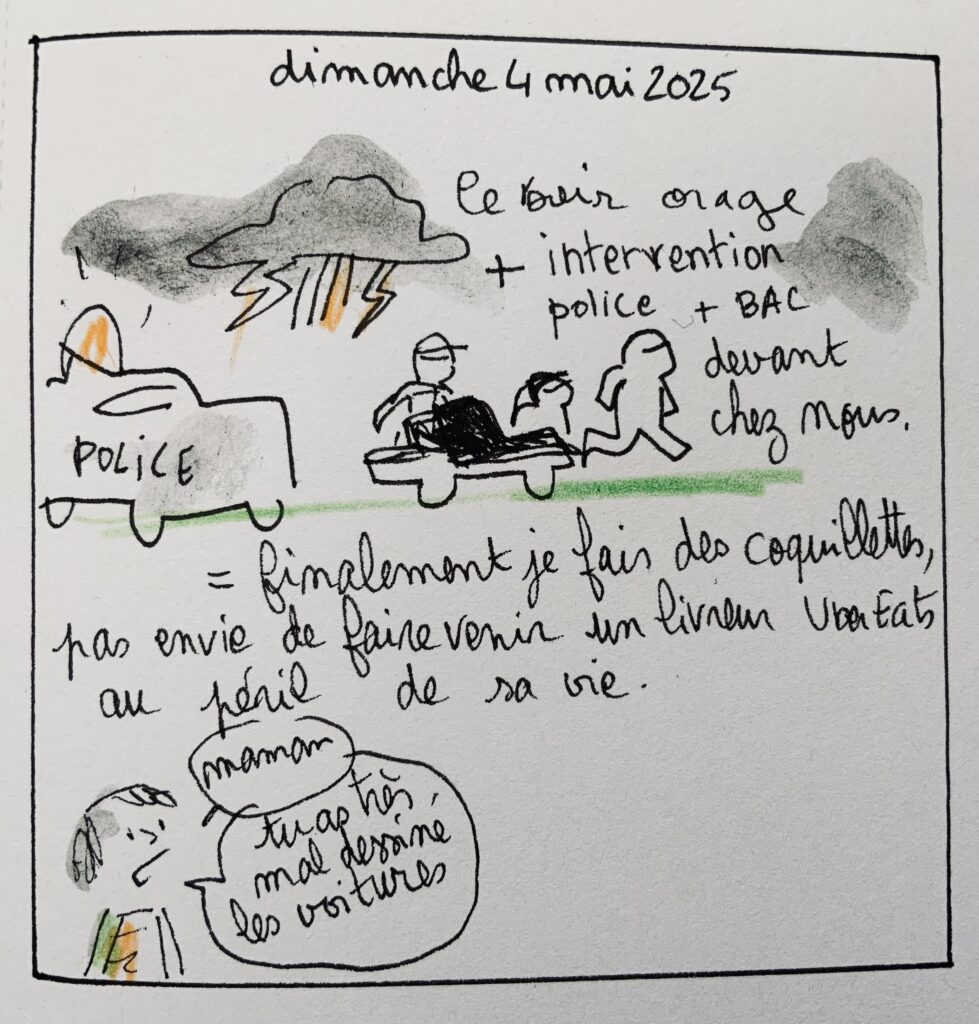 dimanche 4 mai 2025
ce soir orage
+ intervention
police + BAC
devant
chez nous.
POLICE
= finalement je fais des coquillettes,
pas envie de faire venir un livreur UberEats
au péril de sa vie.
maman
tu as très
mal dessiné
les voitures